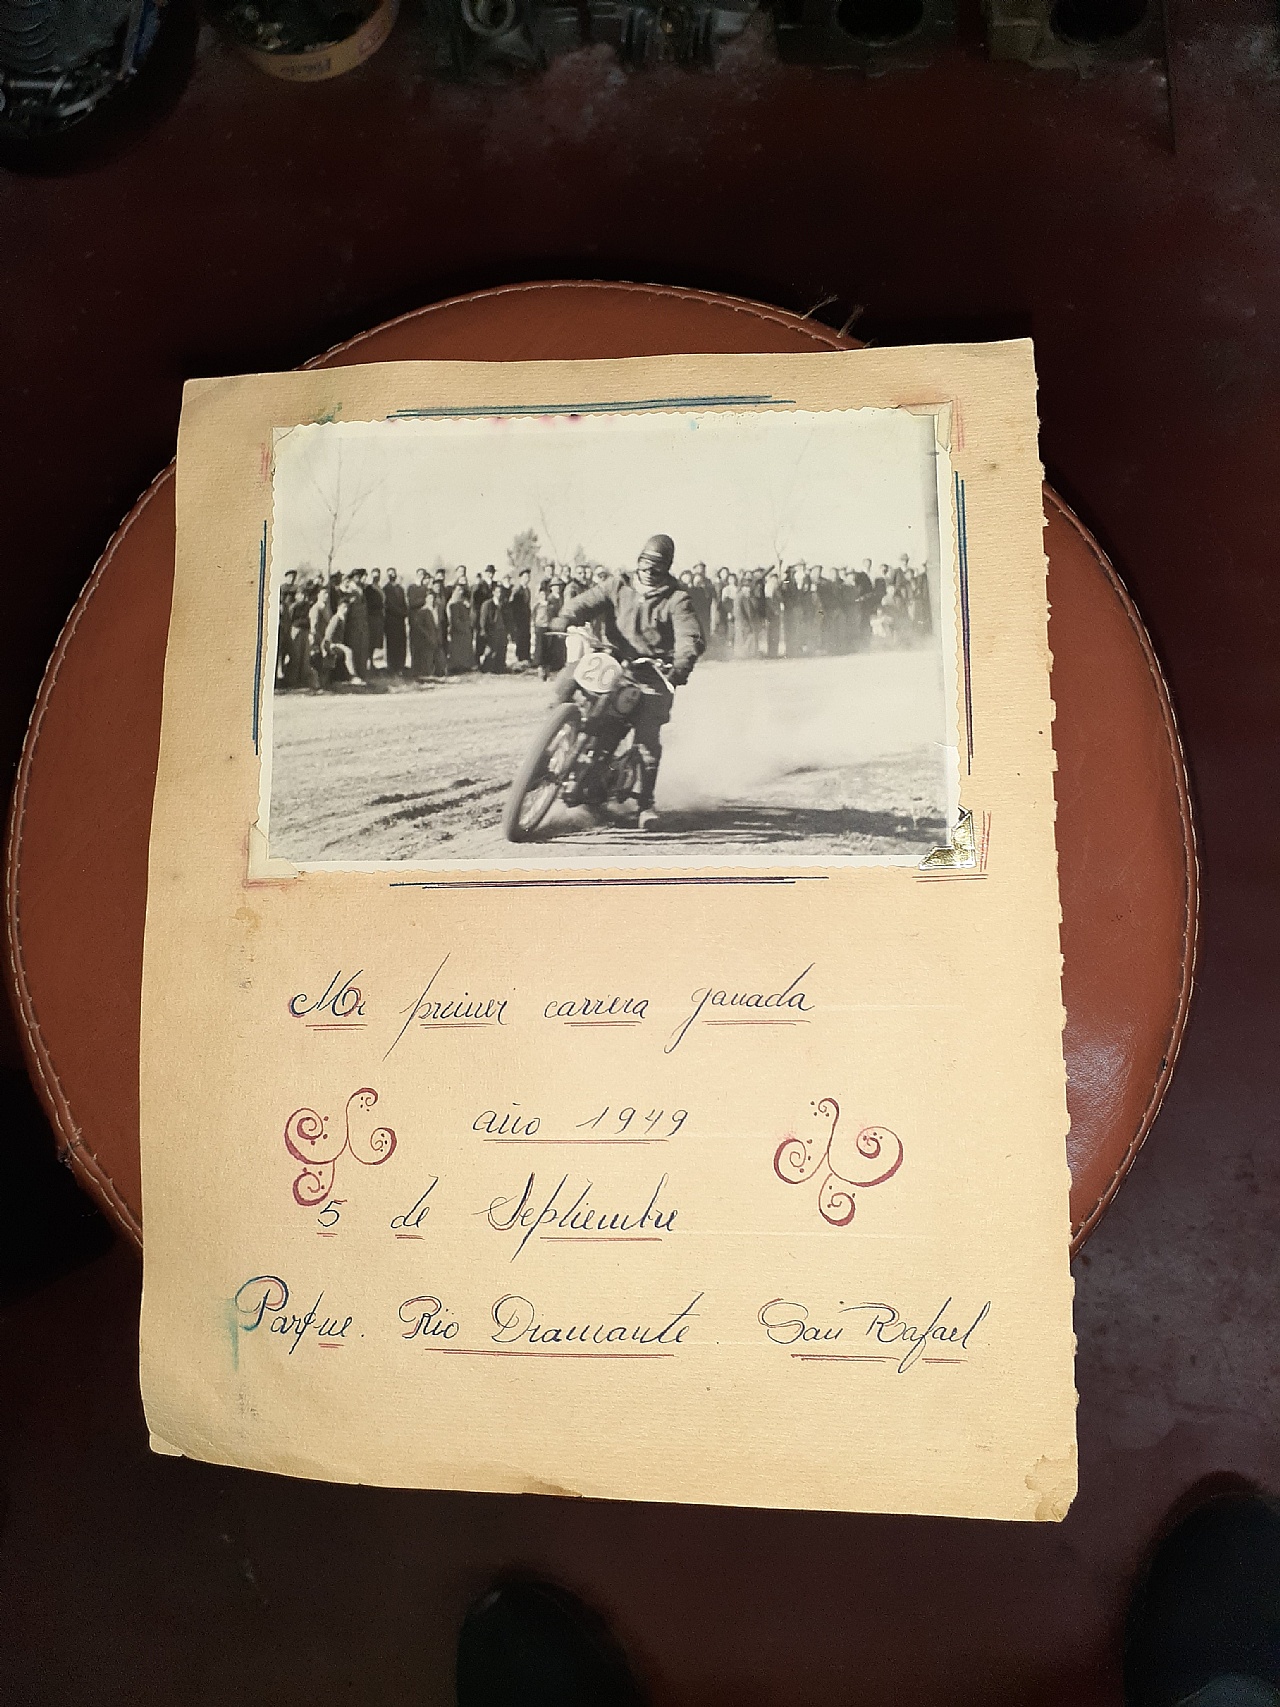 20
Mi primer carrera ganada
año 1949
5 de Septiembre
Parque. Rio Diamante. San Rafael